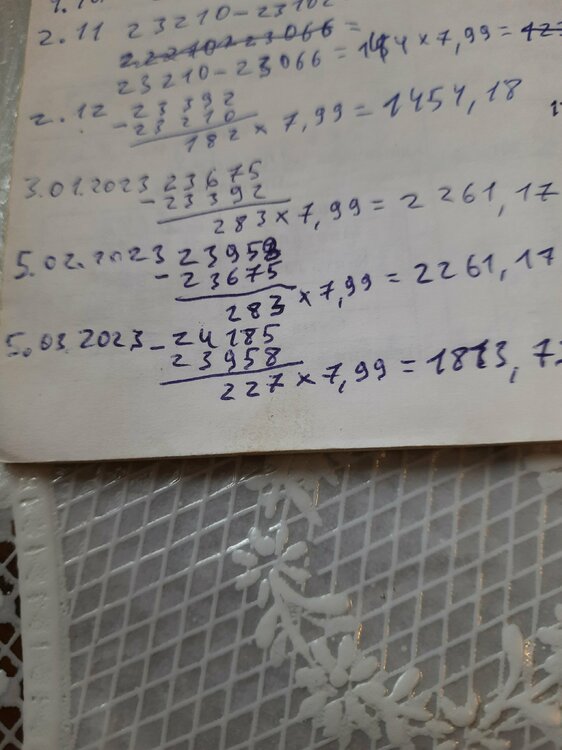 2.11 23210-23102
2.22210-23066=
23210-23066=144×7,99=
2.12 23392
-23210
182×7,99=1454,18
3.01.2023 23675
-23392
283×7,99=2261,17
5.02.2023 23958
-23675
283×7,99=2261,17
5.03.2023-24185
23958
227×7,99=1813,73